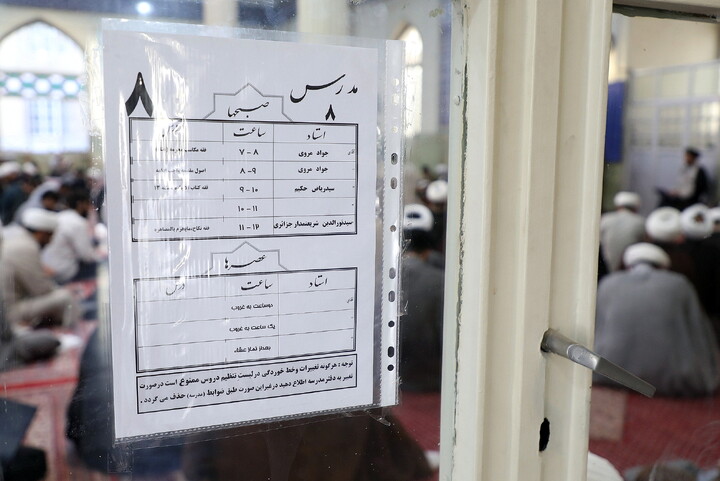 مدرس
۸
۸
صبحها
استاد ساعت درس
جواد مروی ۷-۸ فقه
جواد مروی ۸-۹ اصول
سیدریاض حکیم ۹-۱۰ فقه کتاب
۱۰-۱۱
سیدنورالدین شریعتمدار جزائری ۱۱-۱۲ فقه نکاح
عصرها
استاد ساعت درس
دوساعت به غروب
یک ساعت به غروب
بعداز نماز عشاء
توجه : هرگونه تغییرات وخط خوردگی درلیست تنظیم دروس ممنوع است درصورت
تغییر به دفتر مدرسه اطلاع دهید درغیراین صورت طبق ضوابط (مدرسه) حذف می گردد .